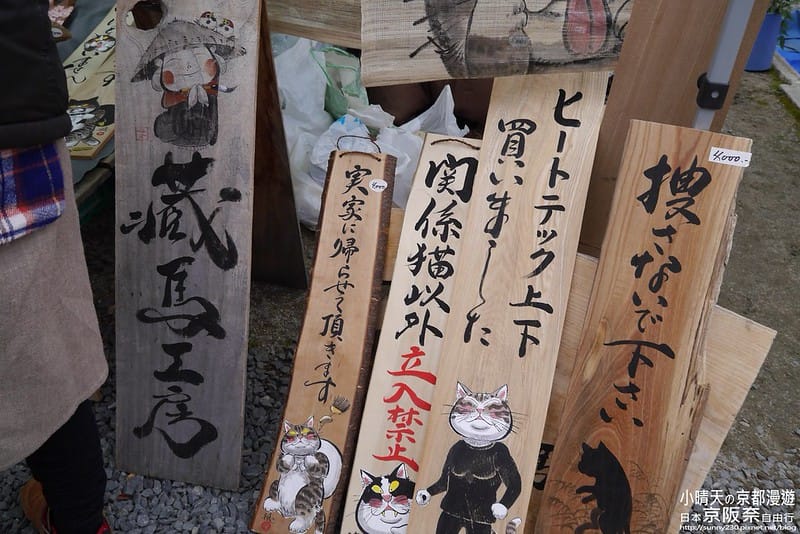 蔵馬工房
実家に帰らせて頂きます
4,000
関係猫以外
立入禁止
ヒートテック上下
買いました
捜さないで下さい
4,000.-
小晴天の京都漫遊
日本京阪奈自由行
http://sunny230.pixnet.net/blog